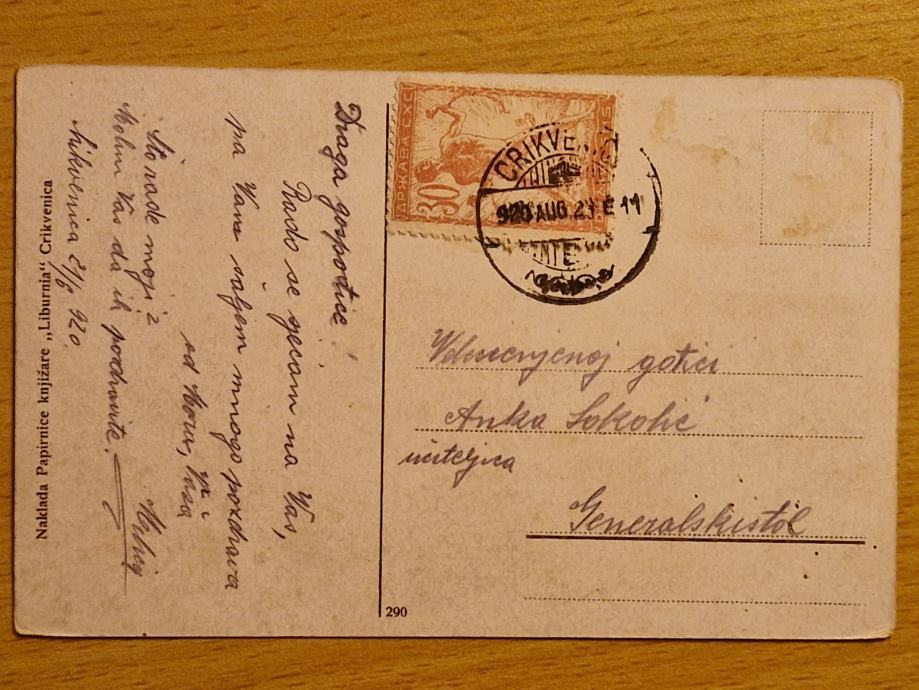 Draga gospodice!
Rado se sjećam na Vas,
pa Vam šaljem mnogo pozdrava
od Mora, Vaša
Što rade moji?
Molim Vas da ih pozdravite.
Crikvenica 21/8 920.
Naklada Papirnice knjižare „Liburnia“ Crikvenica
290
30
ДРЖАВА СХС
CRIKVENICA
920 AUG 23 E 11
Anka Sokolić
učiteljica
Generalskistol